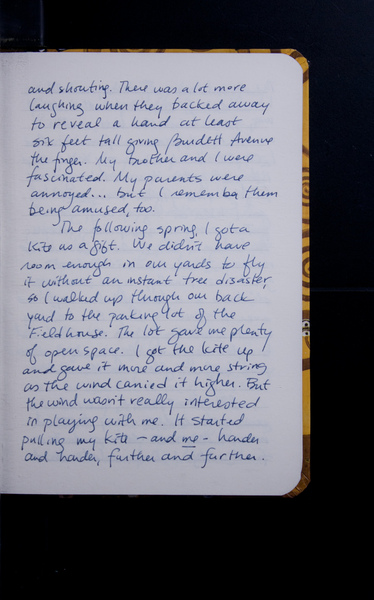 and shouting. There was a lot more
laughing when they backed away
to reveal a hand at least
six feet tall giving Burdett Avenue
the finger. My brother and I were
fascinated. My parents were
annoyed... but I remember them
being amused, too.
The following spring, I got a
kite as a gift. We didn't have
room enough in our yards to fly
it without an instant tree disaster,
so I walked up through our back
yard to the parking lot of the
Fieldhouse. The lot gave me plenty
of open space. I got the kite up
and gave it more and more string
as the wind carried it higher. But
the wind wasn't really interested
in playing with me. It started
pulling my kite - and me - harder
and harder, further and further.